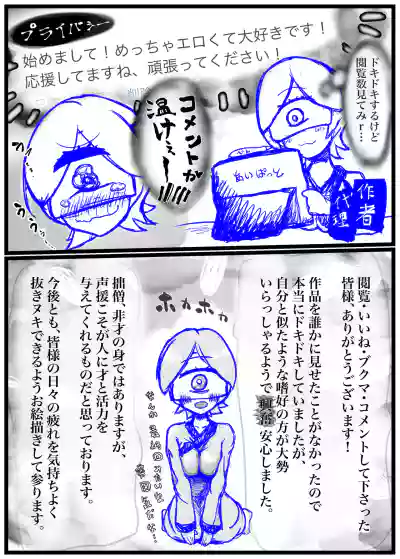 プライバシー
始めまして！めっちゃエロくて大好きです！
応援してますね、頑張ってください！
ドキドキするけど
閲覧数見てみr…
コメントが
温けぇ〜！
あいぱっど
作者
代理
閲覧・いいね・ブクマ・コメントして下さった
皆様、ありがとうございます！
作品を誰かに見せたことがなかったので
本当にドキドキしていましたが、
自分と似たような嗜好の方が大勢
いらっしゃるようで
安心しました。
ホカホカ
拙僧、非才の身ではありますが、
声援こそが人に才と活力を
与えてくれるものだと思っております。
今後とも、皆様の日々の疲れを気持ちよく
抜きヌキできるようお絵描きして参ります。